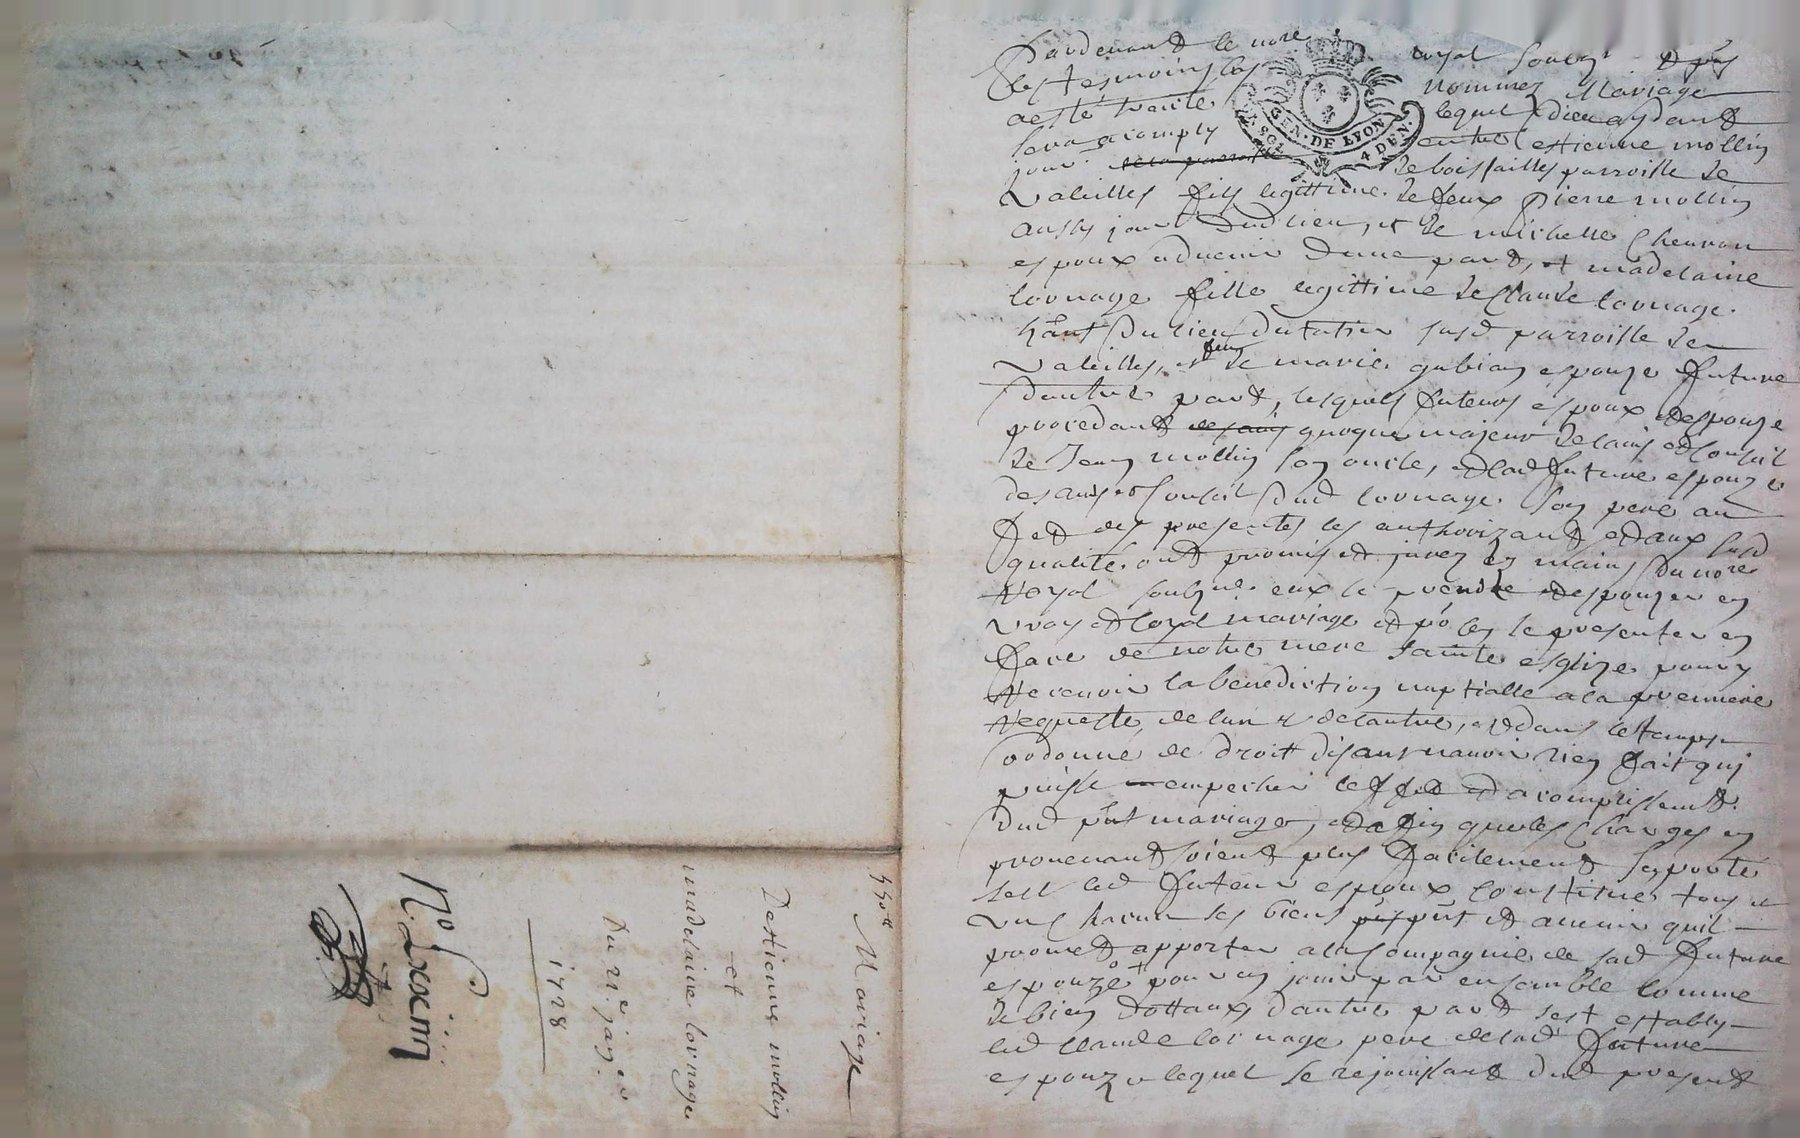 Pardevant le nore royal soubzne & pns
les tesmoins bas nommez Mariage
a esté traité lequel dieu aydant
sera acomply entre estienne mollin
jour de bois faillis parroisse de
GEN · DE LYON
4 DEN.
valeilles fils legittime de feux pierre mollin
aussy jour dud lieu, et de michelle Chevron
espoux advenir dune part, et madelaine
lovnage fille legittime de Claude lovnage
hant du lieu du tatier susd parroisse de
valeilles, et feu de marie gubian espouze future
dautre part, lesquels futeurs espoux et espouze
procedant quoque majeur de lavis et conseil
de Jean mollin son oncle, et lad future espouze
des avis et conseil dud lovnage son pere au
fet des presentes les authorizant et aux susd
qualité ont promis et jurez es mains du nore
royal soubzne eux se prendre et espouzer en
vray et loyal mariage et po ce se presenter en
face de notre mere sainte esglize pour y
recevoir la benediction nuptialle a la premiere
requeste de lun et de lautre, et dans le temps
ordonné de droit disant navoir rien fait qui
puisse empecher leffet et acomplissemt
dud pnt mariage, et afin que les Charges en
provenant soient plus facilement suporté
sest led futeur espoux constitué tous et
un chacun ses biens pnt et avenir quil
promet apporter a la compagnie de sad future
espouze pour en jouir par ensemble comme
de bien dottaux dautre part sest estably
led claude lovnage pere de lad future
espouze lequel se rejouissant dud present
Mariage
Destienne mollin
et
madelaine lovnage
Du 21e janer
1728
No